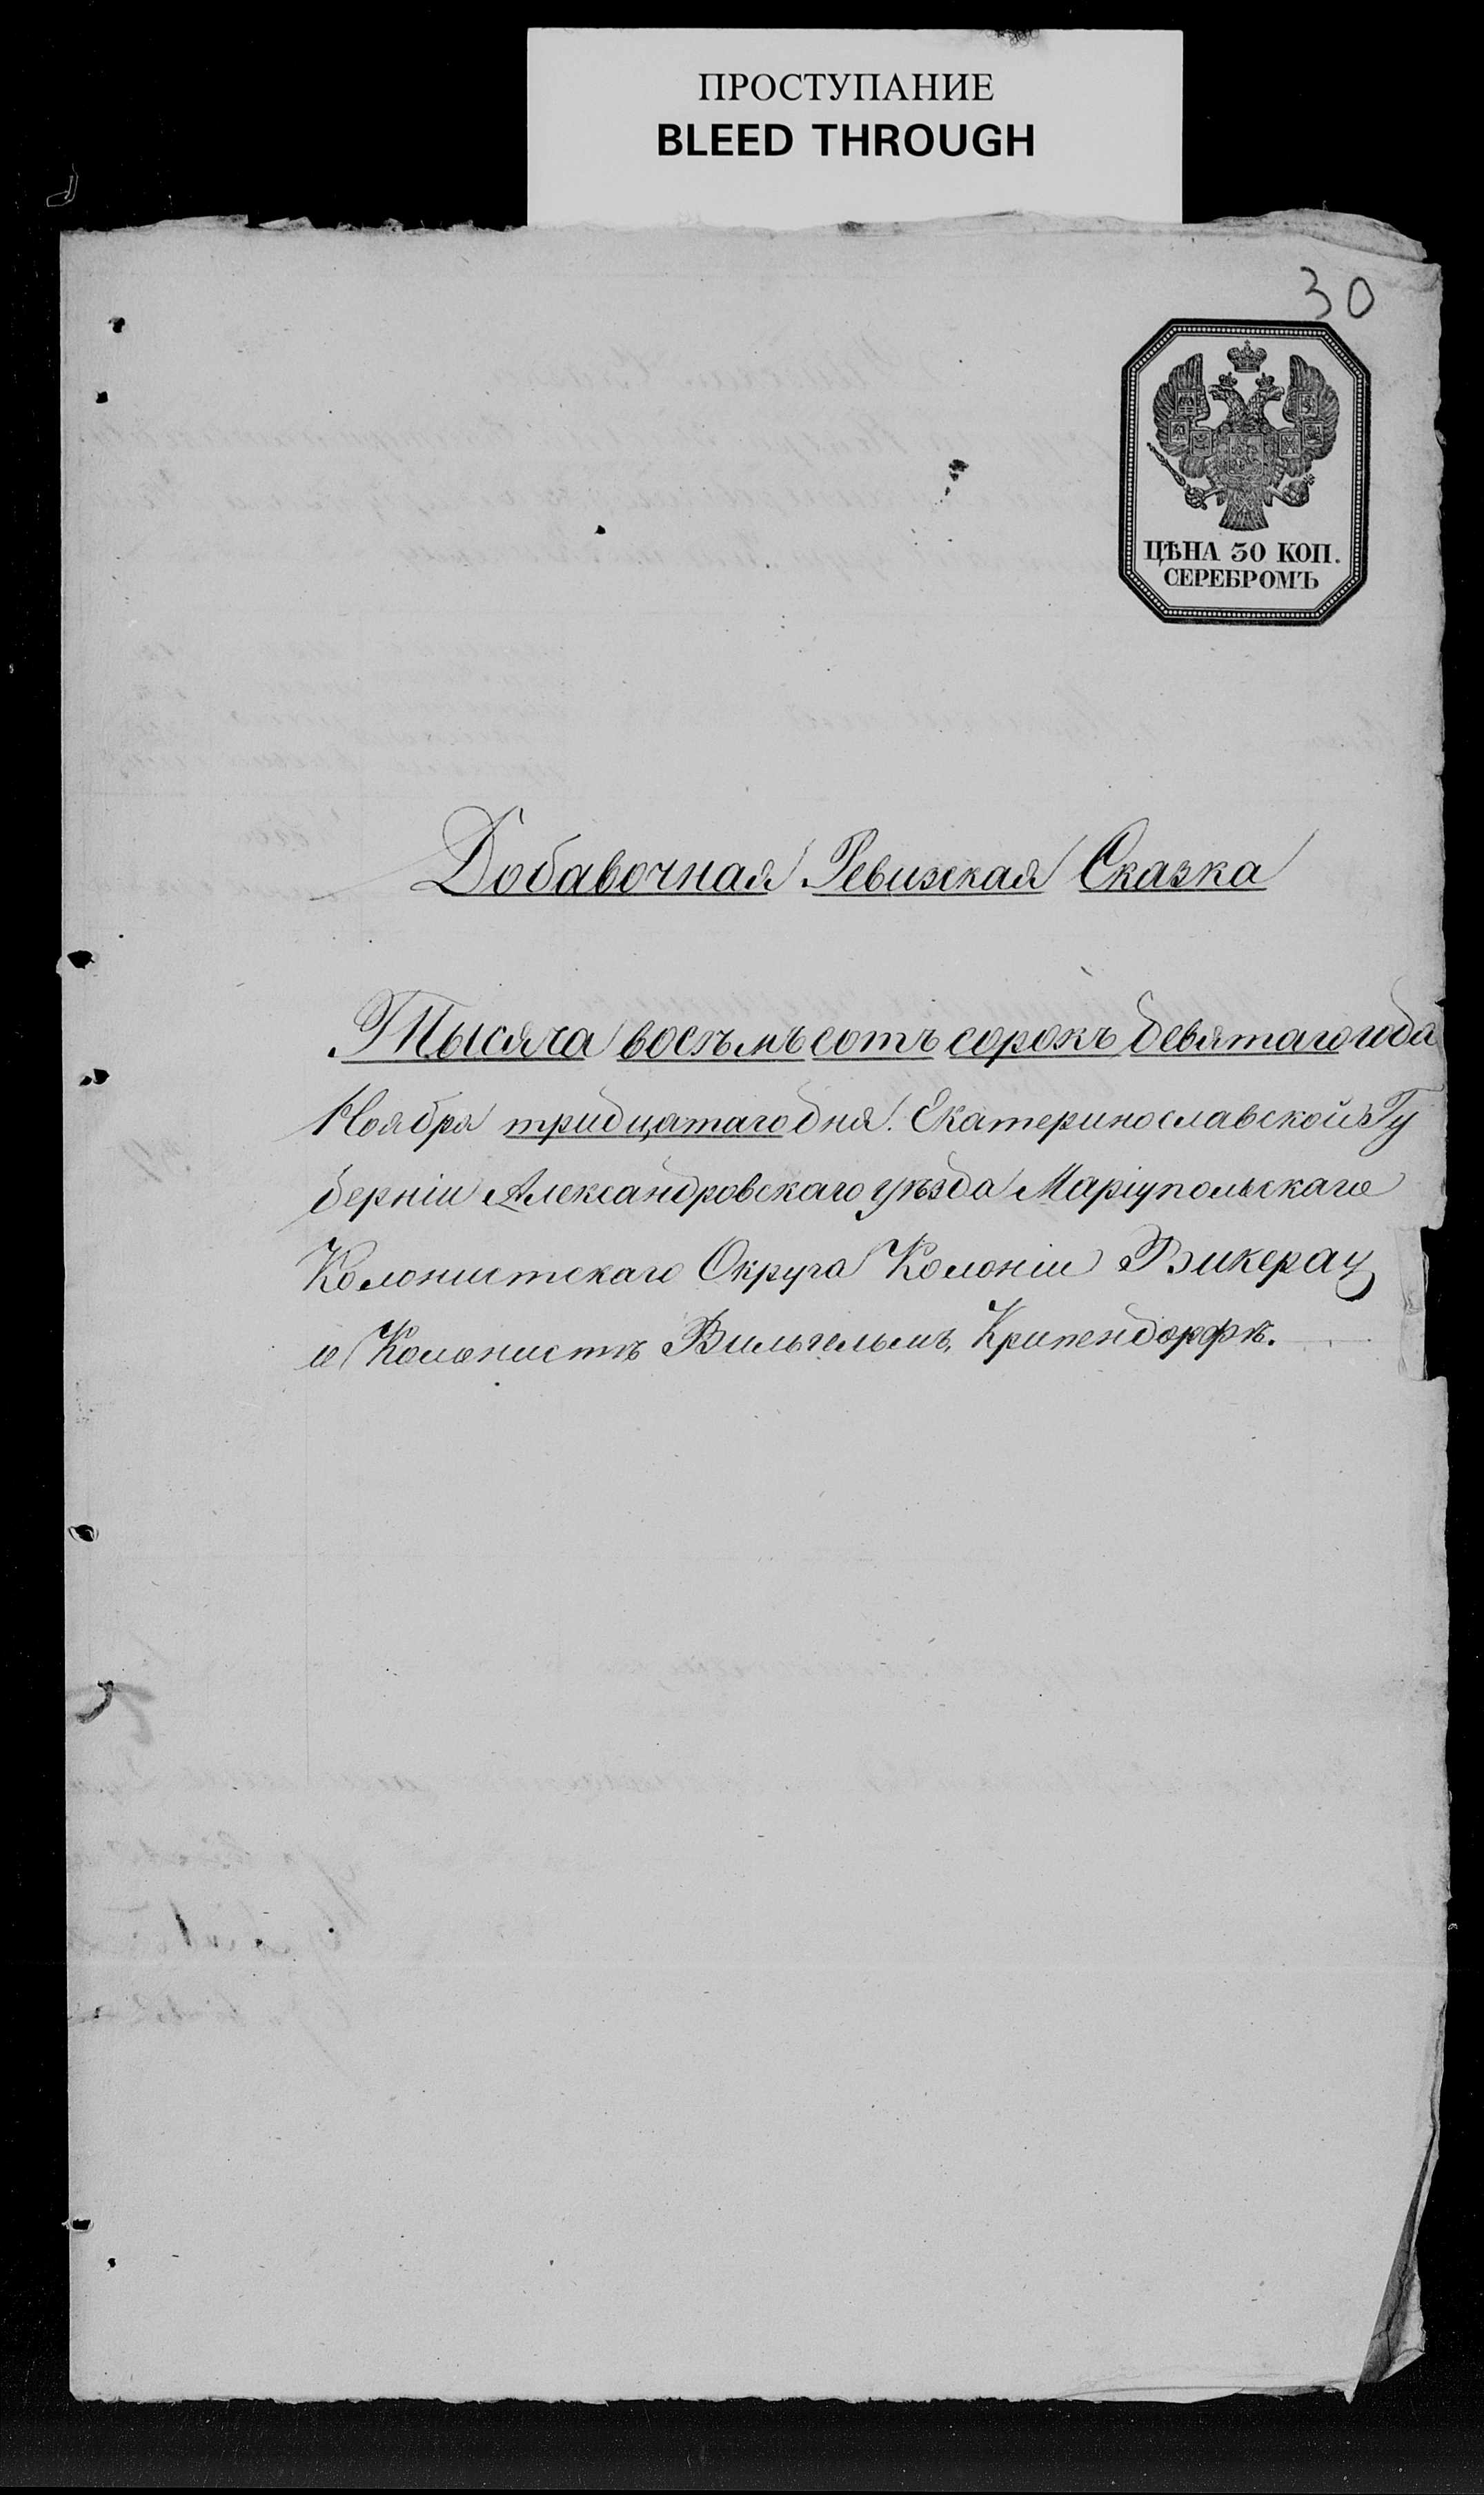 ПРОСТУПАНИЕ
BLEED THROUGH
30
ЦѢНА 30 КОП.
СЕРЕБРОМЪ
Добавочная Ревизская Сказка
Тысяча восемь сотъ сорокъ девятаго года
Ноября тридцатаго дня. Екатеринославской Гу
берніи Александровскаго уѣзда Маріупольскаго
Колонистскаго Округа Колоніи Викерау
о Колонистѣ Вильгельмѣ Крипендорфѣ.